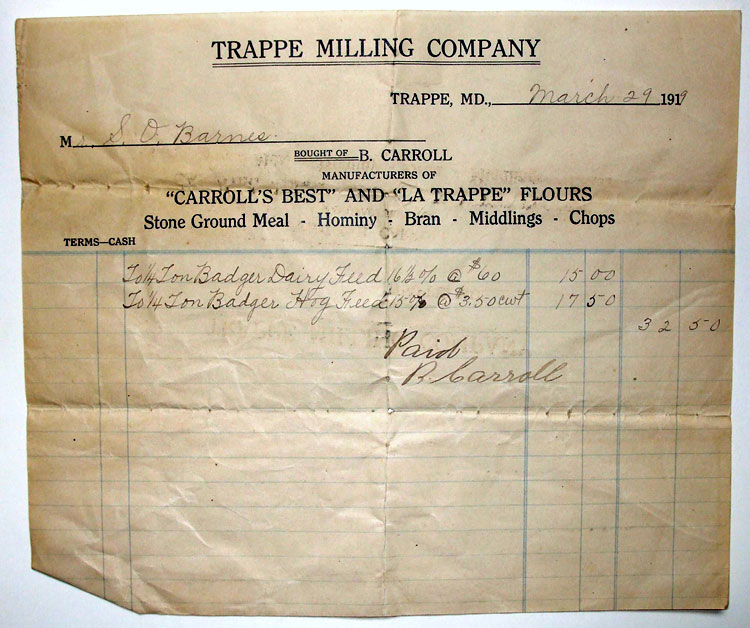 TRAPPE MILLING COMPANY
TRAPPE, MD., March 29 1919
Mr. S. O. Barnes.
BOUGHT OF B. CARROLL
MANUFACTURERS OF
"CARROLL'S BEST" AND "LA TRAPPE" FLOURS
Stone Ground Meal - Hominy - Bran - Middlings - Chops
TERMS—CASH
To 1/4 Ton Badger Dairy Feed 16½% @ $60 15 00
To 1/4 Ton Badger Hog Feed 15% @ $3.50 cwt 17 50
32 50
Paid
B. Carroll